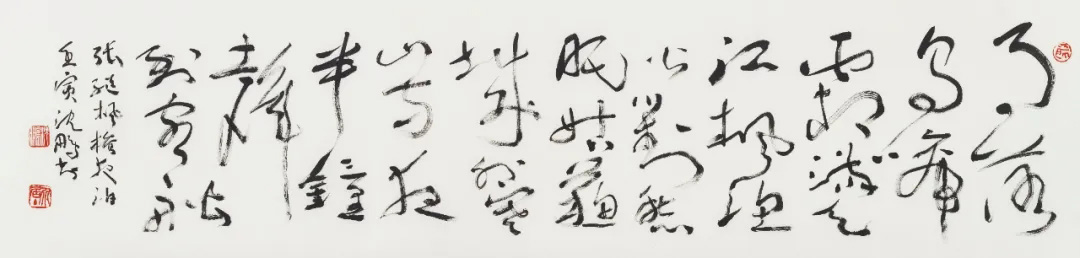 月落
烏啼
霜滿天
江楓漁
火對愁
眠姑蘇
城外寒
山寺夜
半鐘
聲
到客船
張繼楓橋夜泊
壬寅沈鹏书